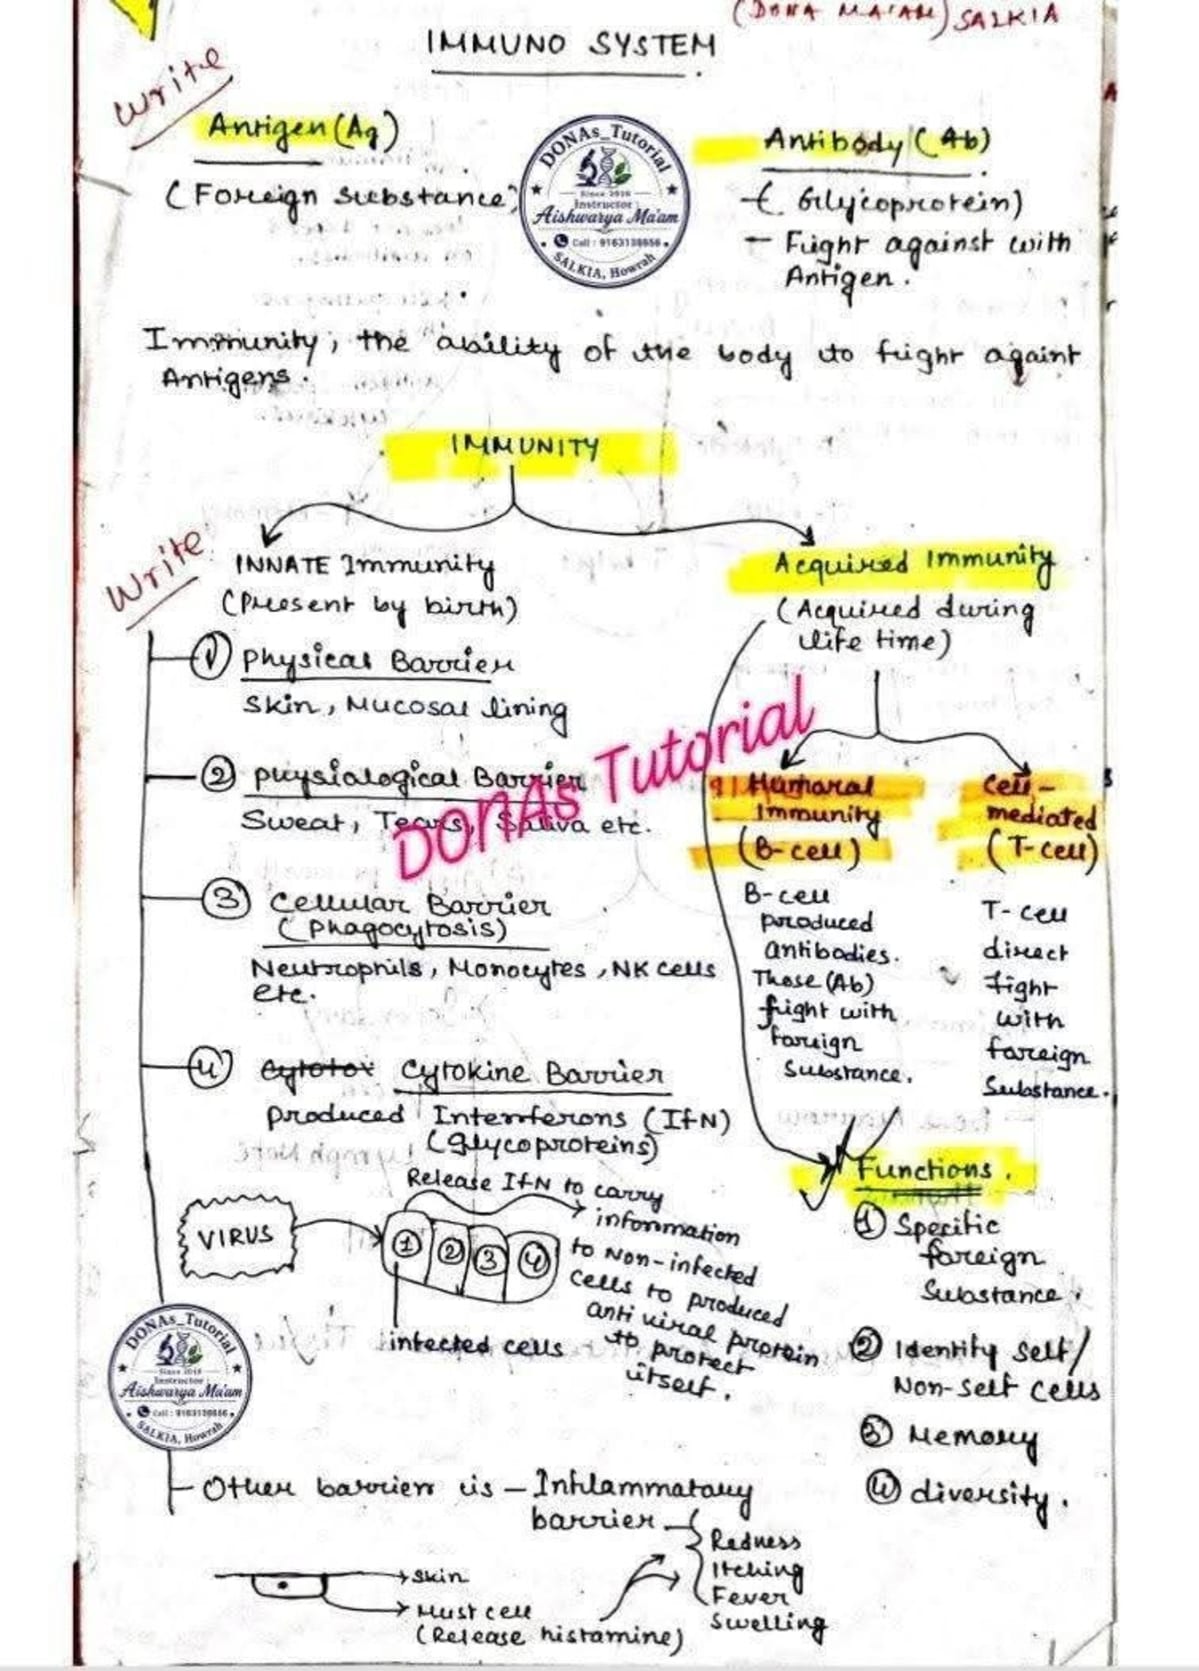 (DONA MA'AM) SALKIA
IMMUNO SYSTEM
Write
Antigen (Ag)
(Foreign Substance)
DONAs_Tutorial
Since 2018
Instructor :
Aishwarya Ma'am
SALKIA, Howrah
Antibody (Ab)
(Glycoprotein)
- Fright against with
Antigen.
Immunity; the ability of the body to fright againt
Antigens.
IMMUNITY
Write
INNATE Immunity
(Present by birth)
① Physical Barrier
Skin, Mucosal lining
② Physiological Barrier
Sweat, Tears, Saliva etc.
③ Cellular Barrier
(Phagocytosis)
Neutrophils, Monocytes, NK cells
etc.
④ Cytotox Cytokine Barrier
Produced Interferons (IfN)
(Glycoproteins)
Release IfN to carry
information
to Non-infected
cells to produced
anti viral protein
to protect
itself.
VIRUS
① ② ③ ④
infected cells
DONAs_Tutorial
Since 2018
Instructor
Aishwarya Ma'am
SALKIA, Howrah
Other barrier is - Inflammatory
barrier
Redness
Itching
Fever
Swelling
Skin
Must cell
(Release histamine)
Acquired Immunity
(Acquired during
life time)
Humaral
Immunity
(B-cell)
B-cell
produced
antibodies.
Those (Ab)
fright with
foreign
Substance.
Cell-
mediated
(T-cell)
T-cell
direct
fight
with
foreign
Substance.
Functions.
① Specific
foreign
Substance.
② Identity self/
Non-self cells
③ Memory
④ diversity.
DONAs Tutorial